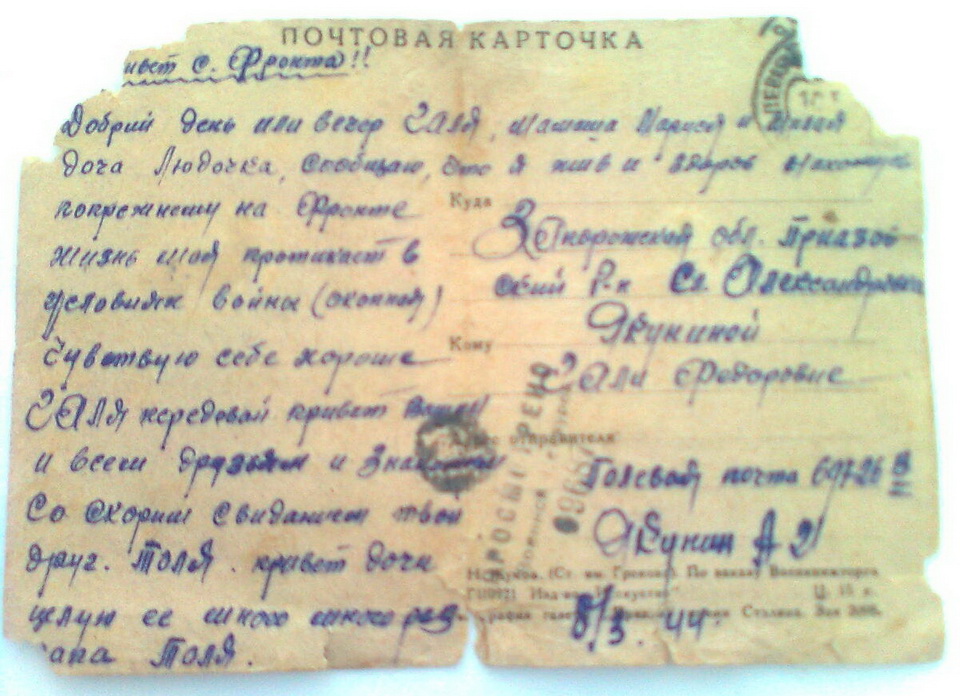 ПОЧТОВАЯ КАРТОЧКА
ивет с. Фронта!!
Добрий день или вечер Заля, мамаша Маруся и милая
доча Людочка, сообщаю, что я жив и здоров
попрежнему на Фронте
жизнь моя протикает в
условиях войны (окопной)
чувствую себе хороше
Заля передовай привет Вашим
и всем друзьям и знакомым
Со скорим свиданием твой
друг. Толя. привет дочи
целую ее много много раз
апа Толя.
Куда
Запорожской обл. Приазов
ский Р-н Ст. Александровка
Кому
Якуниной
Зали Федоровне
Адрес отправителя
Полевая почта 69726
Якунин А И
ПРОСМОТРЕНО
Военной Цензурой
(Ст. им. Грекова). По заказу Военвоенторга
Изд-во "Искусство" Ц. 15 к.
Сталина. Зак
8/3. 44.